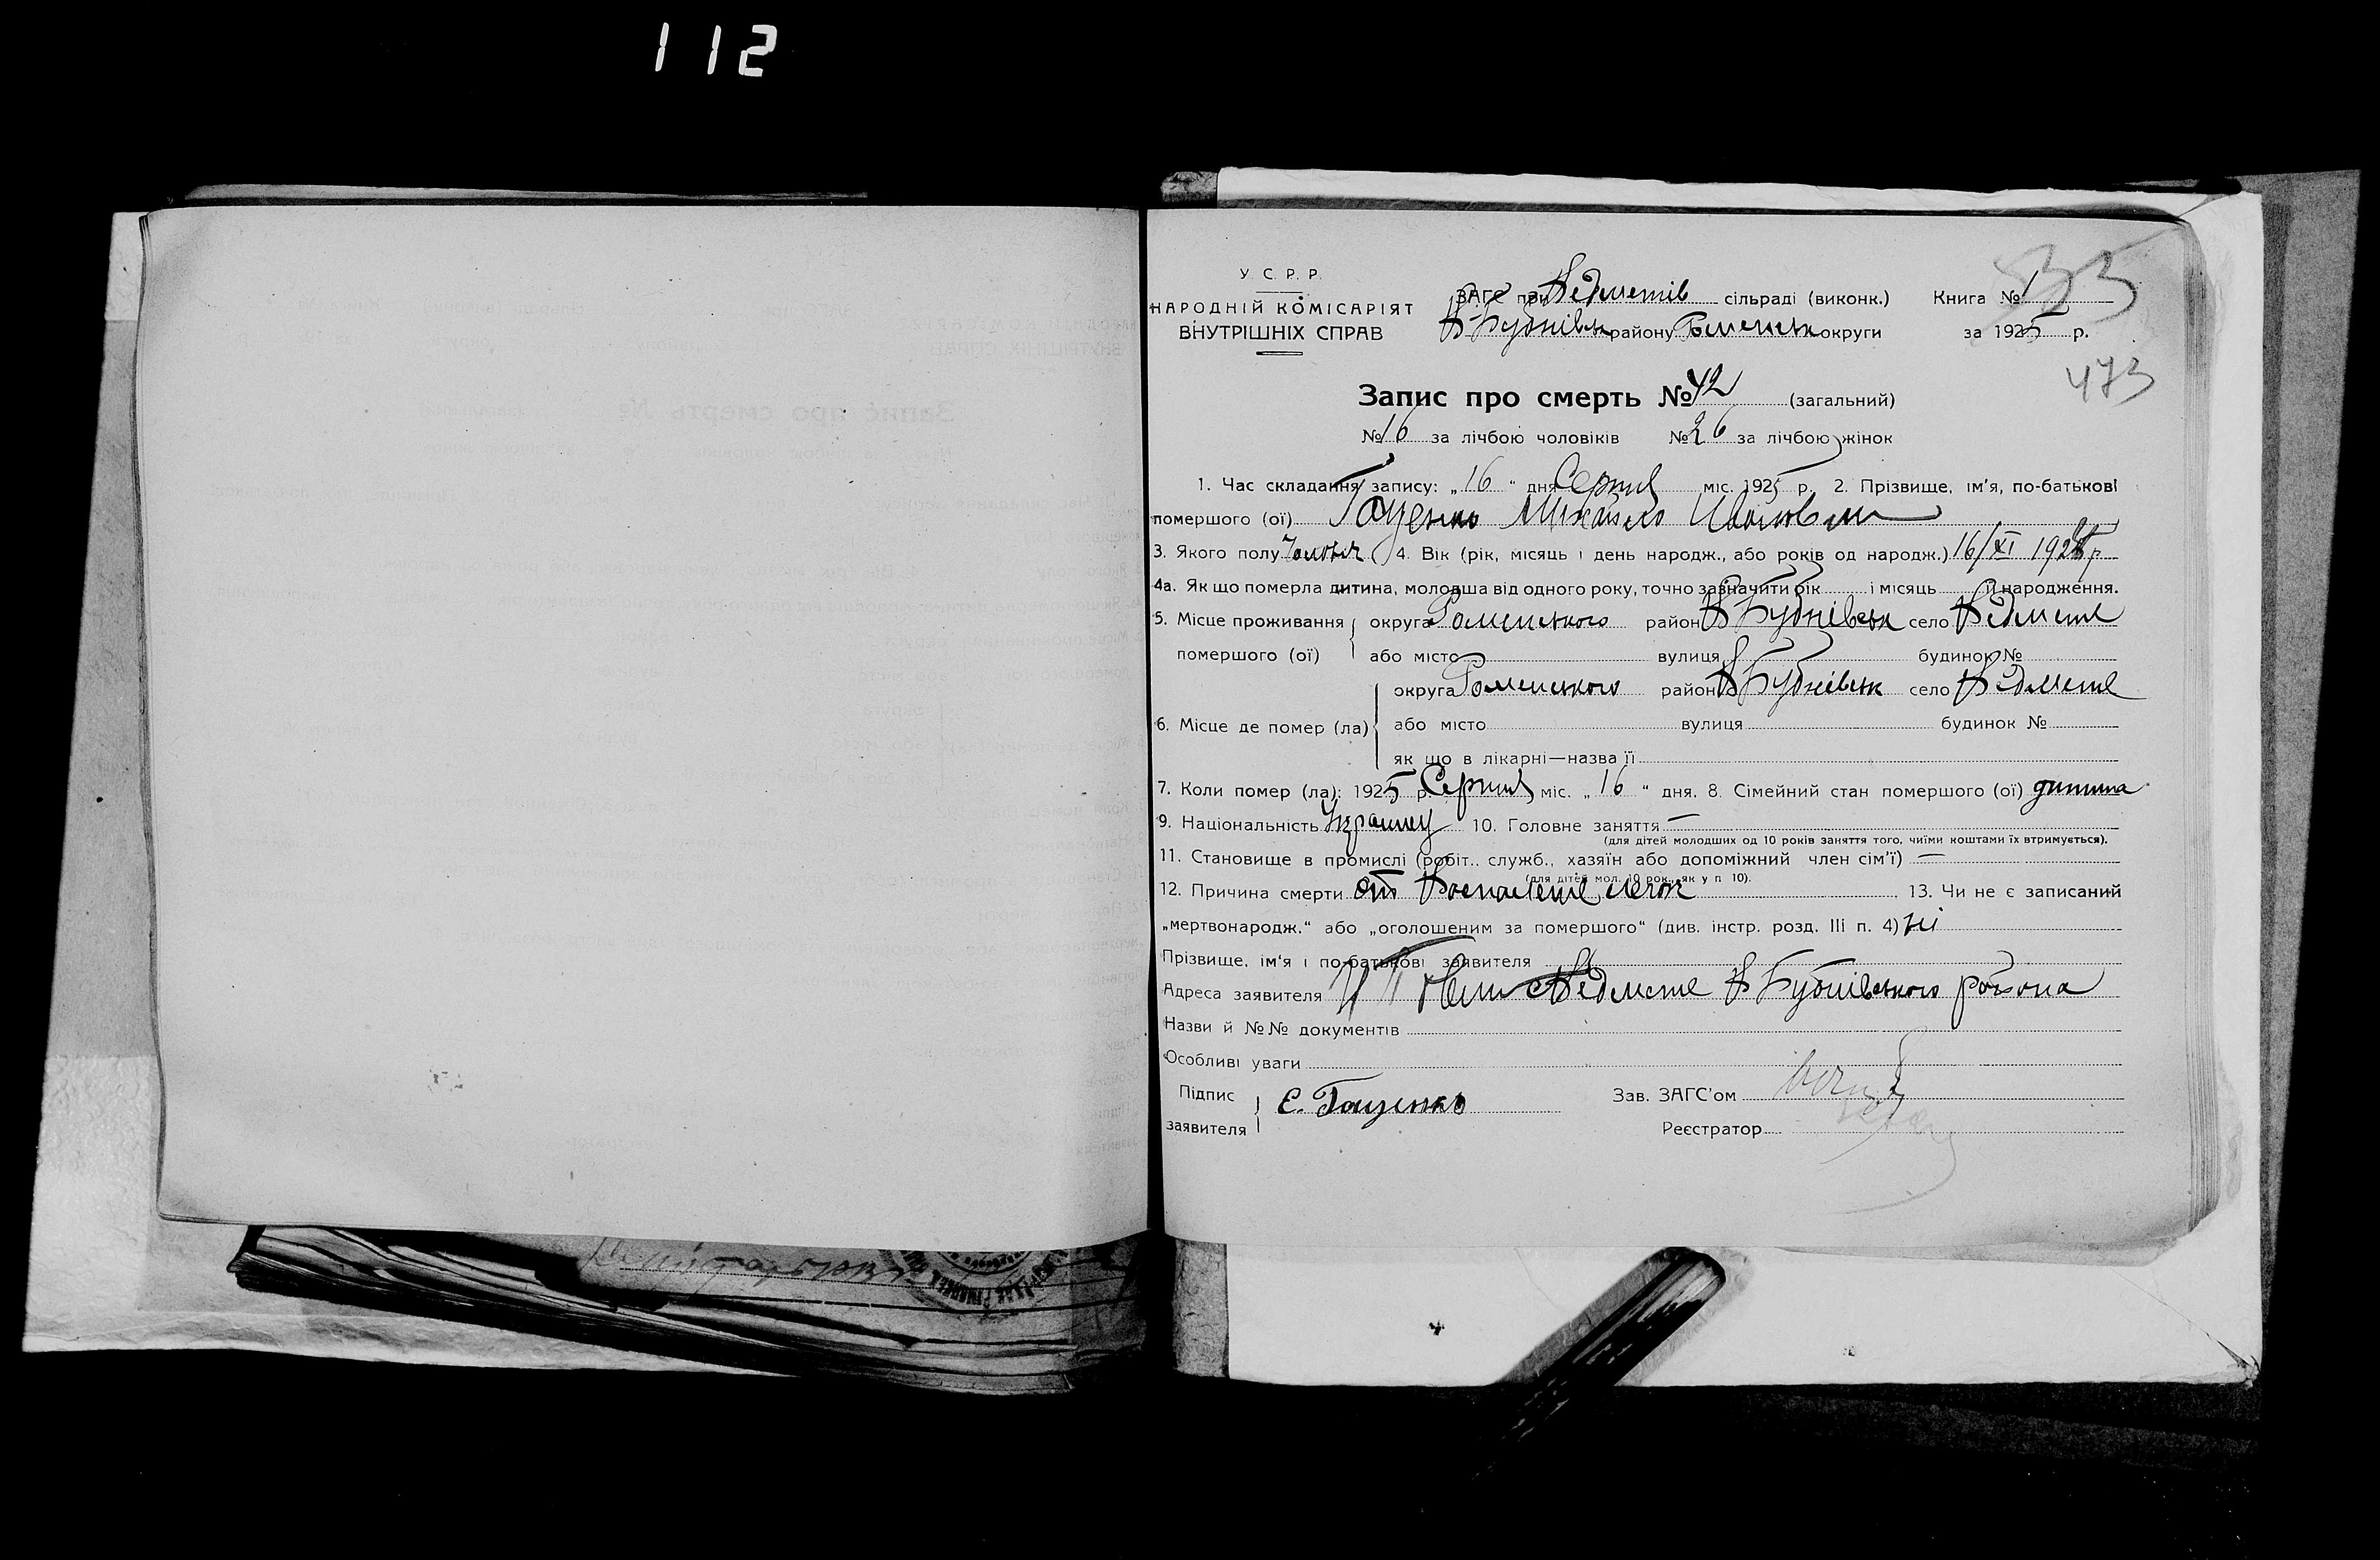 112
У. С. Р. Р.
НАРОДНІЙ КОМІСАРІЯТ
ВНУТРІШНІХ СПРАВ
ЗАГС при Ведметів сільраді (виконк.) Книга № 1
району округи за 1925 р.
473
Запис про смерть № 42 (загальний)
№ 16 за лічбою чоловіків № 26 за лічбою жінок
1. Час складання запису: „16“ дня Серпня міс. 1925 р. 2. Прізвище, ім'я, по-батькові
помершого (ої) Гаценко Михайло Иванович
3. Якого полу 4. Вік (рік, місяць і день народж., або років од народж.) 16/XI 192 р
4а. Як що померла дитина, молодша від одного року, точно зазначити рік і місяць її народження.
5. Місце проживання округа Роменського район В Бубнівськ село Ведмеже
помершого (ої) або місто вулиця будинок №
округа Роменського район В Бубнівськ село Ведмеже
6. Місце де помер (ла) або місто вулиця будинок №
як що в лікарні—назва її
7. Коли помер (ла): 1925 р. Серпня міс. „16“ дня. 8. Сімейний стан помершого (ої) дитина
9. Національність 10. Головне заняття —
(для дітей молодших од 10 років заняття того, чиїми коштами їх втримується).
11. Становище в промислі (робіт., служб., хазяїн або допоміжний член сім'ї) —
(для дітей мол. 10 рок., як у п 10).
12. Причина смерти от Воспаление легок 13. Чи не є записаний
„мертвонародж.“ або „оголошеним за помершого“ (див. інстр. розд. III п. 4) ні
Прізвище, ім'я і по-батькові заявителя
Адреса заявителя Ведмеже В Бубнівського района
Назви й №№ документів
Особливі уваги
Підпис
заявителя Є. Гаценко
Зав. ЗАГС'ом
Реєстратор